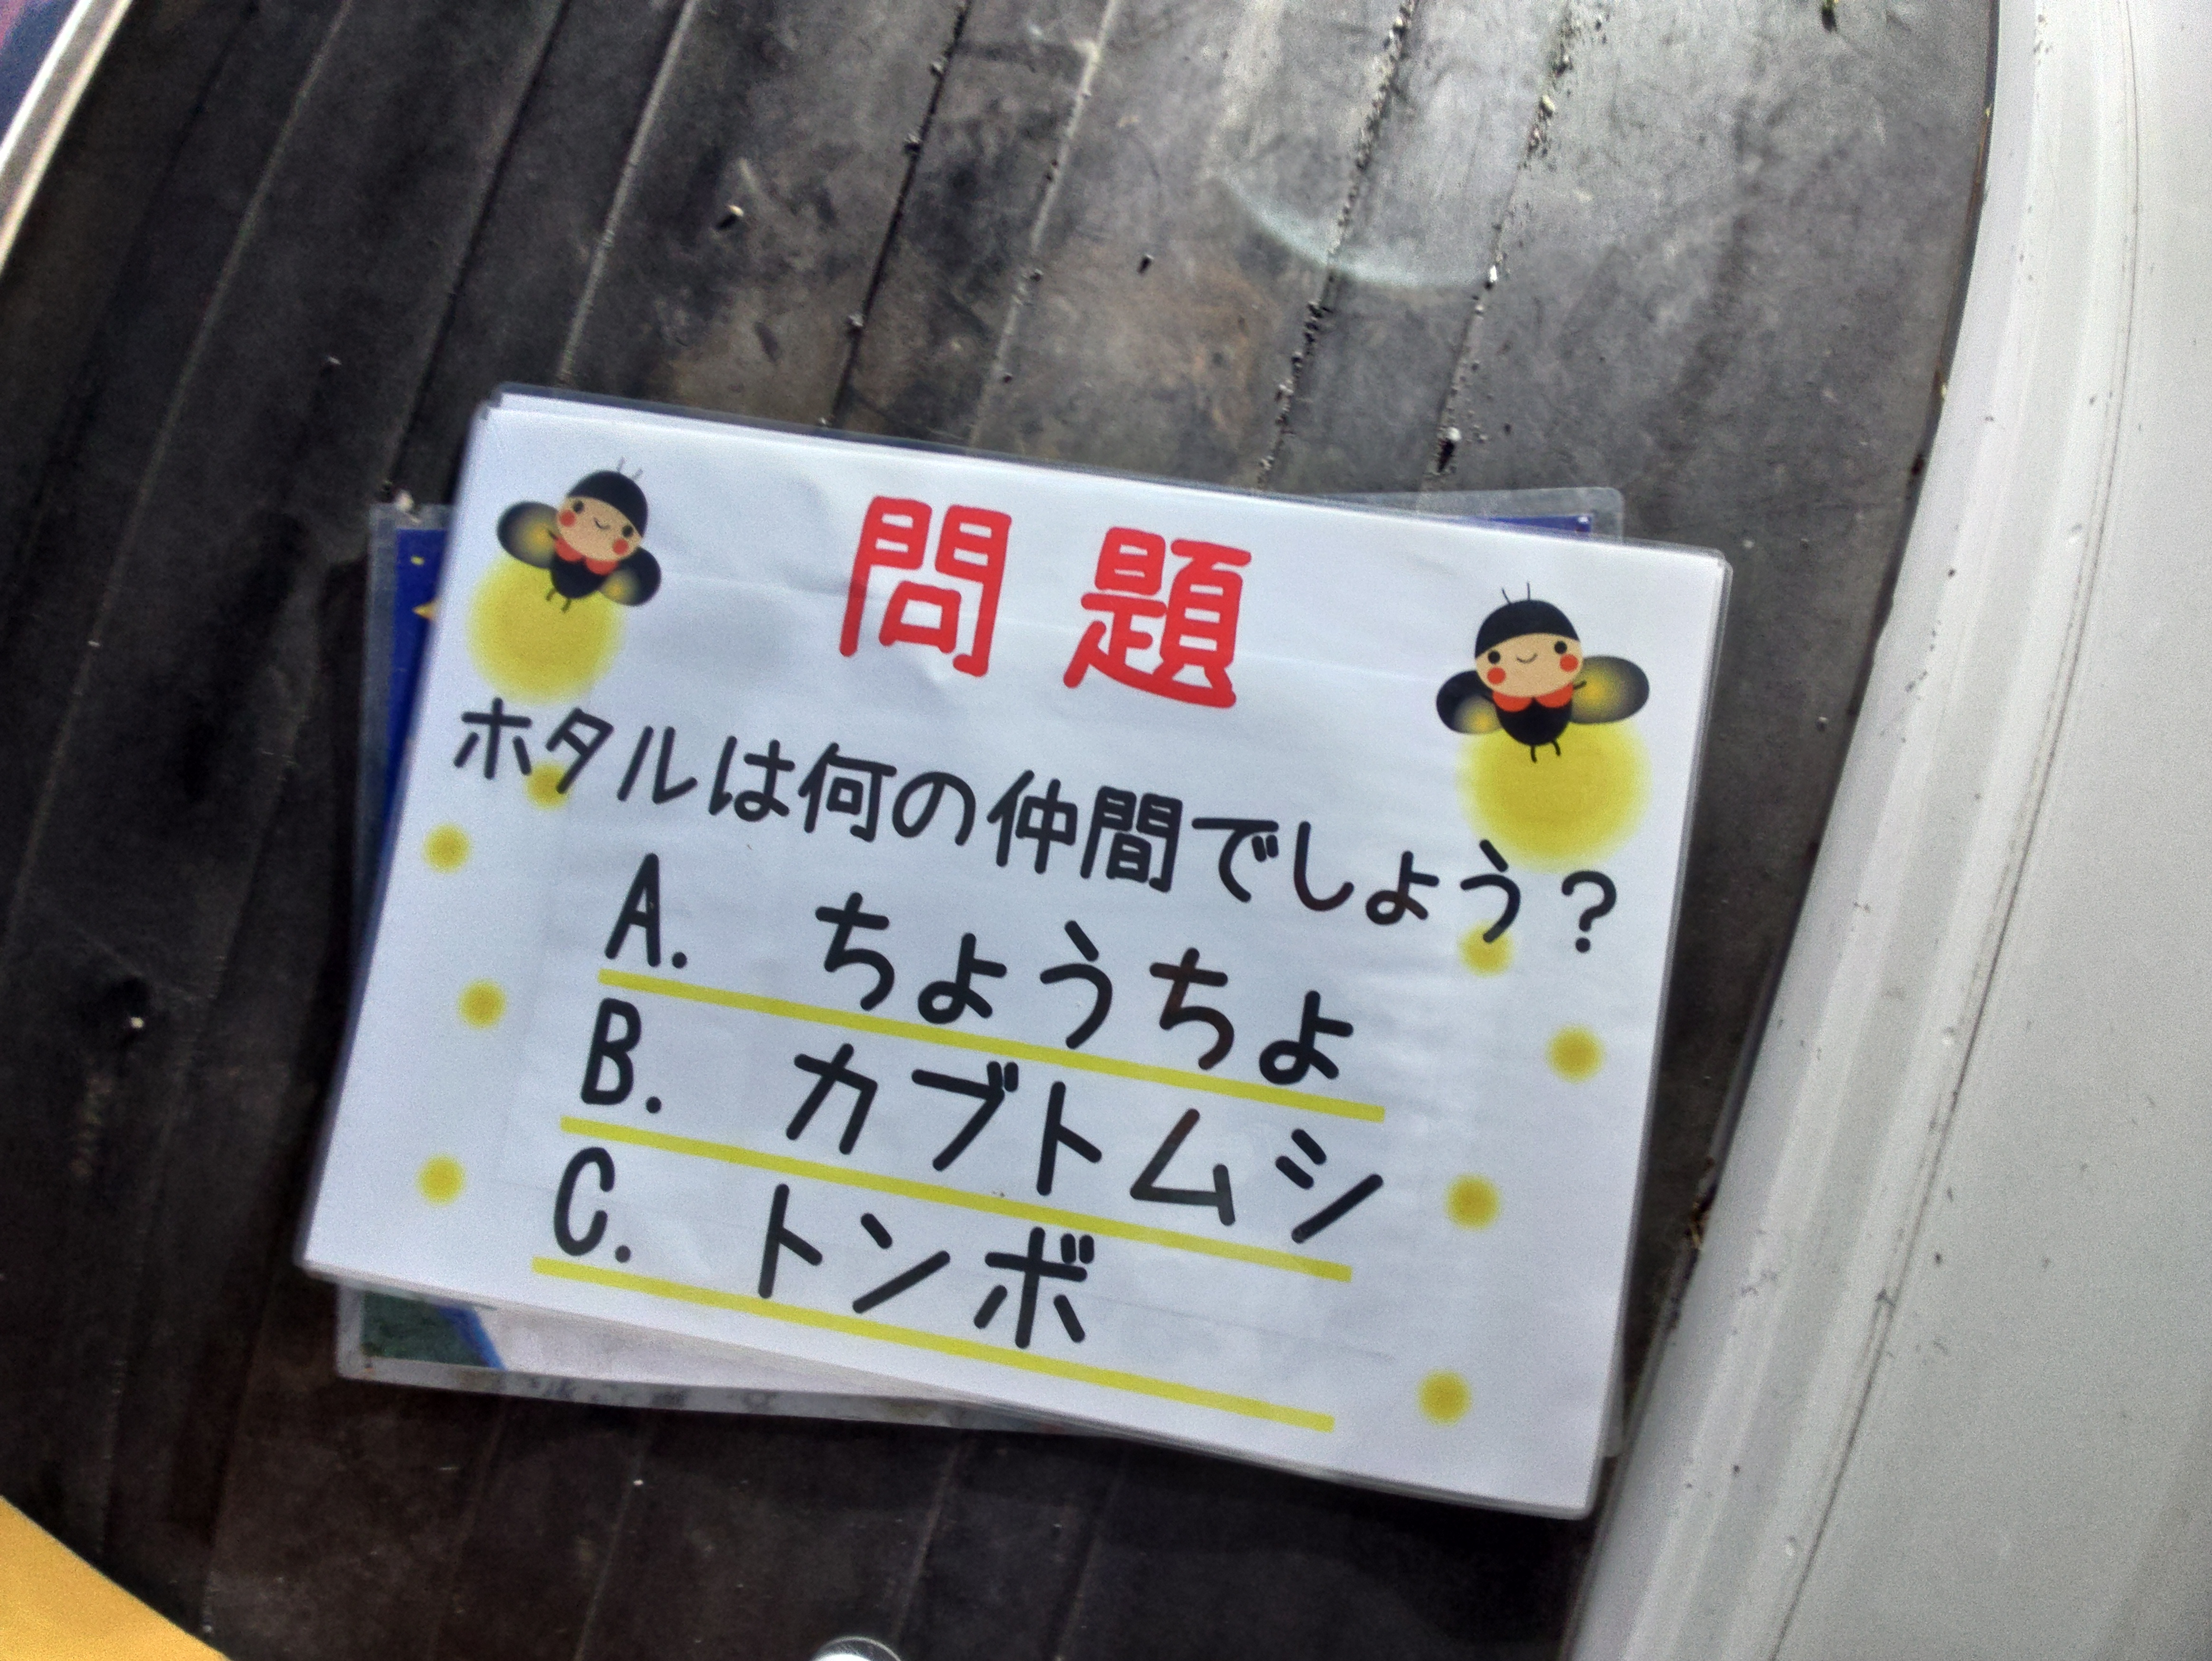 問題
ホタルは何の仲間でしょう？
A. ちょうちょ
B. カブトムシ
C. トンボ